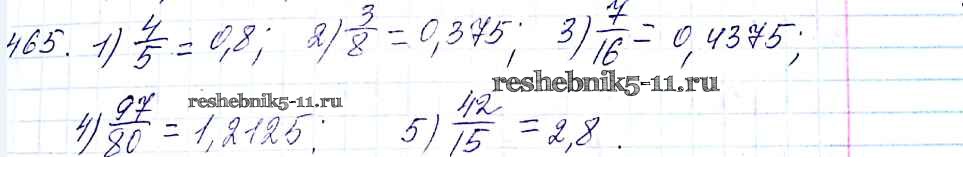 465. 1) 4/5 = 0,8; 2) 3/8 = 0,375; 3) 7/16 = 0,4375;
reshebnik5-11.ru
reshebnik5-11.ru
4) 97/80 = 1,2125; 5) 42/15 = 2,8.